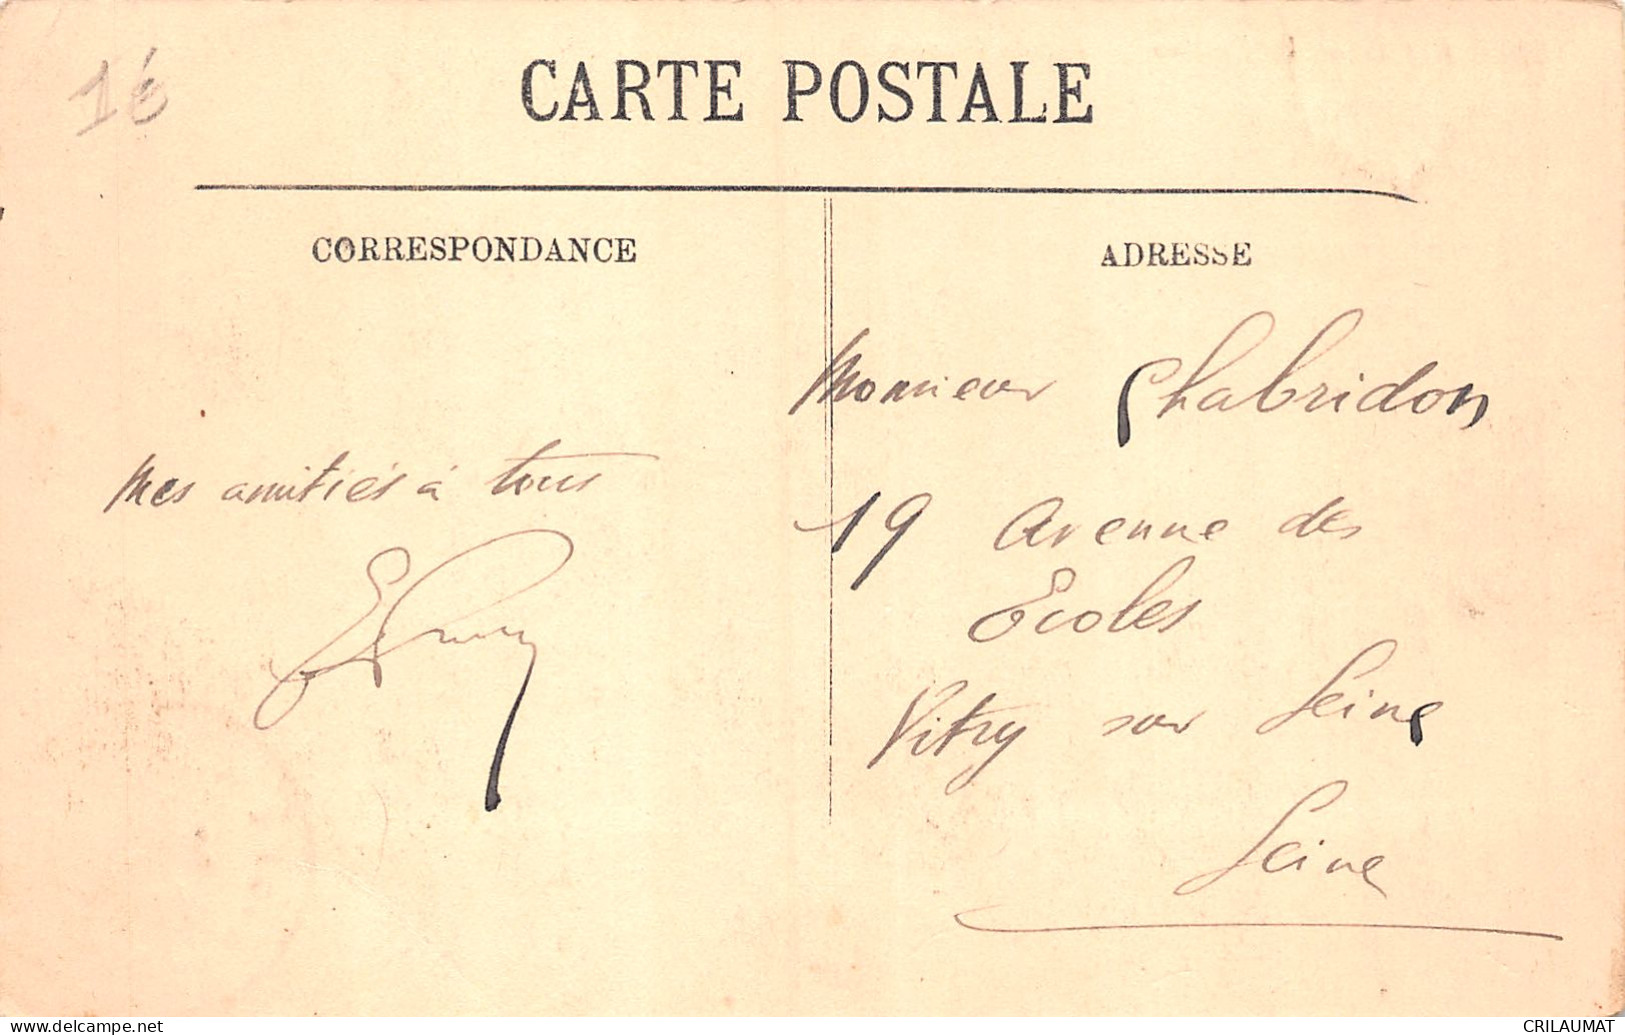 1€
CARTE POSTALE
CORRESPONDANCE
Mes amitiés à tous
ADRESSE
Monsieur Chabridon
19 Avenue des
Ecoles
Vitry sur Seine
Seine
www.delcampe.net
CRILAUMAT